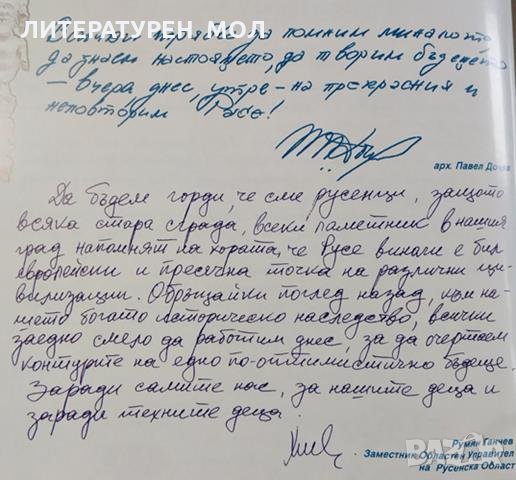 ЛИТЕРАТУРЕН МОЛ
Всички трябва да помним миналото,
да знаем настоящето, да творим бъдещето
– вчера, днес, утре – на прекрасния и
неповторим Русе!
арх. Павел
Да бъдем горди, че сме русенци, защото
всяка стара сграда, всеки паметник в нашия
град напомнят на хората, че Русе винаги е бил
европейски и пресечна точка на различни ци-
вилизации. Обръщайки поглед назад, към на-
шето богато историческо наследство, всички
заедно смело да работим днес, за да очертаем
контурите на едно по-оптимистично бъдеще.
Заради самите нас, за нашите деца и
заради техните деца.
Румен Ганчев
Заместник Областен Управител
на Русенска Област